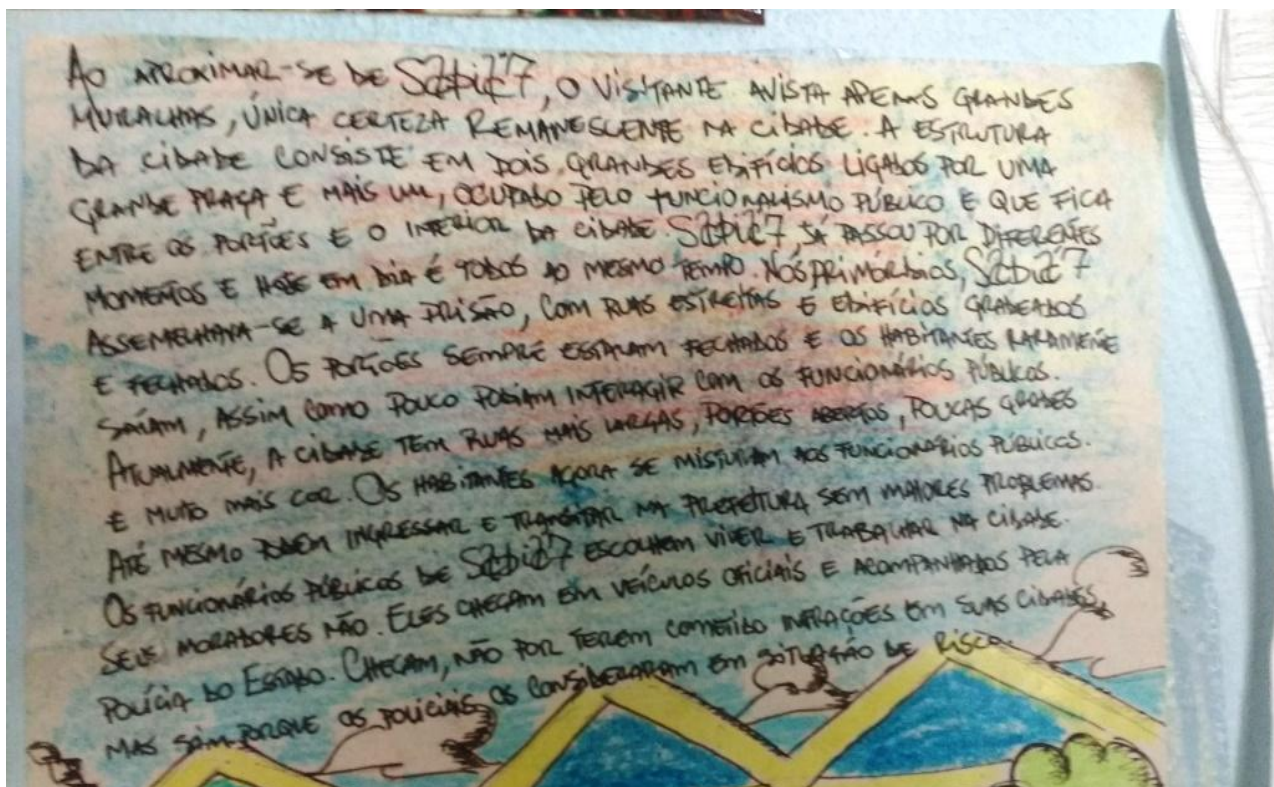 AO APROXIMAR-SE DE S2biá7, O VISITANTE AVISTA APENAS GRANDES
MURALHAS, ÚNICA CERTEZA REMANESCENTE NA CIDADE. A ESTRUTURA
DA CIDADE CONSISTE EM DOIS GRANDES EDIFÍCIOS LIGADOS POR UMA
GRANDE PRAÇA E MAIS UM, OCUPADO PELO FUNCIONALISMO PÚBLICO E QUE FICA
ENTRE OS PORTÕES E O INTERIOR DA CIDADE JÁ PASSOU POR DIFERENTES
MOMENTOS E HOJE EM DIA É TODOS AO MESMO TEMPO. NOS PRIMÓRDIOS,
ASSEMELHAVA-SE A UMA PRISÃO, COM RUAS ESTREITAS E EDIFÍCIOS GRADEADOS
E FECHADOS. OS PORTÕES SEMPRE ESTAVAM FECHADOS E OS HABITANTES RARAMENTE
SAÍAM, ASSIM COMO POUCO PODIAM INTERAGIR COM OS FUNCIONÁRIOS PÚBLICOS.
ATUALMENTE, A CIDADE TEM RUAS MAIS LARGAS, PORTÕES ABERTOS, POUCAS GRADES
E MUITO MAIS COR. OS HABITANTES AGORA SE MISTURAM AOS FUNCIONÁRIOS PÚBLICOS.
ATÉ MESMO PODEM INGRESSAR E TRANSITAR NA PREFEITURA SEM MAIORES PROBLEMAS.
OS FUNCIONÁRIOS PÚBLICOS DE ESCOLHEM VIVER E TRABALHAR NA CIDADE.
SEUS MORADORES NÃO. ELES CHEGAM EM VEÍCULOS OFICIAIS E ACOMPANHADOS PELA
POLÍCIA DO ESTADO. CHEGAM, NÃO POR TEREM COMETIDO INFRAÇÕES EM SUAS CIDADES,
MAS SIM PORQUE OS POLICIAIS OS CONSIDERARAM EM SITUAÇÃO DE RISCO.